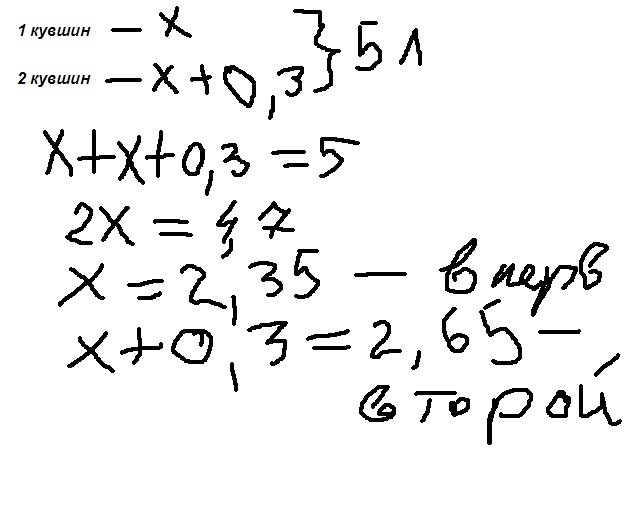 1 кувшин — x
2 кувшин — x+0,3 } 5 л
x+x+0,3=5
2x=4,7
x=2,35 — в перв
x+0,3=2,65 —
второй